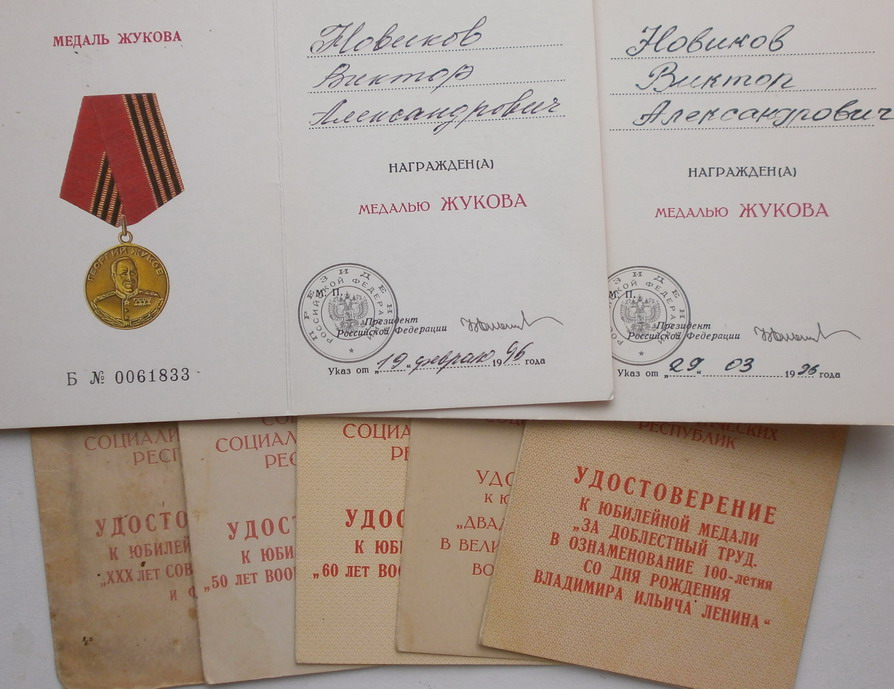 МЕДАЛЬ ЖУКОВА
ГЕОРГИЙ ЖУКОВ
Б № 0061833
Новиков
Виктор
Александрович
НАГРАЖДЕН(А)
МЕДАЛЬЮ ЖУКОВА
М. П.
Президент
Российской Федерации
Указ от „19" февраля 1996 года
Новиков
Виктор
Александрович
НАГРАЖДЕН(А)
МЕДАЛЬЮ ЖУКОВА
М. П.
Президент
Российской Федерации
Указ от „29" 03 1996 года
СОЦИАЛИ
РЕСП
УДОСТО
К ЮБИЛЕЙ
„XXX ЛЕТ СОВ
И Ф
СОЦИАЛ
РЕС
УДОСТ
К ЮБИ
„50 ЛЕТ ВООР
СОЦИА
РЕ
УДОС
К ЮБИ
„60 ЛЕТ ВООР
УДО
К Ю
„ДВАД
В ВЕЛИ
ВО
РЕСПУБЛИК
УДОСТОВЕРЕНИЕ
К ЮБИЛЕЙНОЙ МЕДАЛИ
„ЗА ДОБЛЕСТНЫЙ ТРУД.
В ОЗНАМЕНОВАНИЕ 100-летия
СО ДНЯ РОЖДЕНИЯ
ВЛАДИМИРА ИЛЬИЧА ЛЕНИНА"